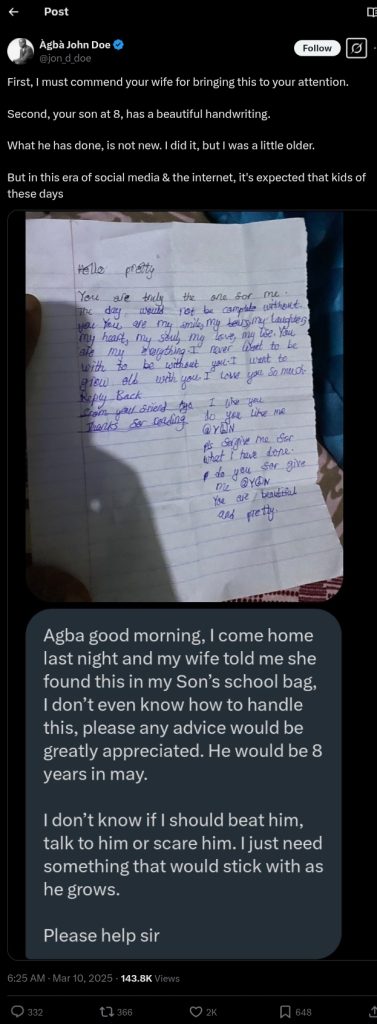 Post
Àgbà John Doe
@jon_d_doe
Follow
First, I must commend your wife for bringing this to your attention.
Second, your son at 8, has a beautiful handwriting.
What he has done, is not new. I did it, but I was a little older.
But in this era of social media & the internet, it's expected that kids of
these days
Hello pretty
You are truly the one sor me.
The day would not be complete without
you You are my smile, my tears, my laughter,
my heart, my soul, my love, my lise. You
are my everything. I never want to be
with to be without you. I want to
grow old with you. I love you so much.
Reply Back
srom your sriend
Thanks sor reading
I like you
do you like me
Y N
ps sorgive me sor
what I have done.
p do you sor give
me Y N
You are beautiful
and pretty.
Agba good morning, I come home
last night and my wife told me she
found this in my Son's school bag,
I don't even know how to handle
this, please any advice would be
greatly appreciated. He would be 8
years in may.
I don't know if I should beat him,
talk to him or scare him. I just need
something that would stick with as
he grows.
Please help sir
6:25 AM · Mar 10, 2025 · 143.8K Views
332
366
2K
648